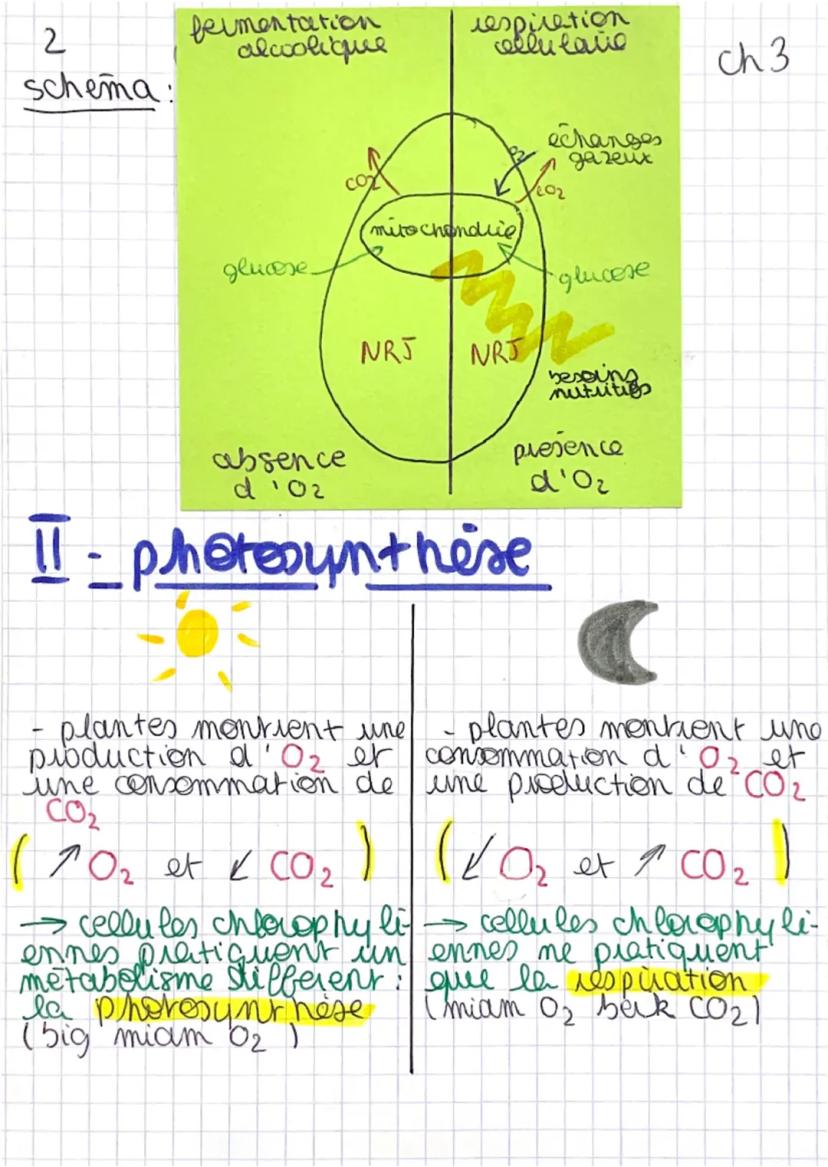 2
schéma :
ch 3
fermentation
alcoolique
respiration
cellulaire
échanges
gazeux
CO2
O2
CO2
mitochondrie
glucose
glucose
NRJ
NRJ
besoins
nutritifs
absence
d'O2
présence
d'O2
II - photosynthèse
- plantes montrent une
production d'O2 et
une consommation de
CO2
( ↗ O2 et ↙ CO2 )
→ cellules chlorophyli-
ennes pratiquent un
métabolisme différent :
la photosynthèse
(big miam O2 )
- plantes montrent une
consommation d'O2 et
une production de CO2
( ↙ O2 et ↗ CO2 )
→ cellules chlorophyli-
ennes ne pratiquent
que la respiration
(miam O2 berk CO2)